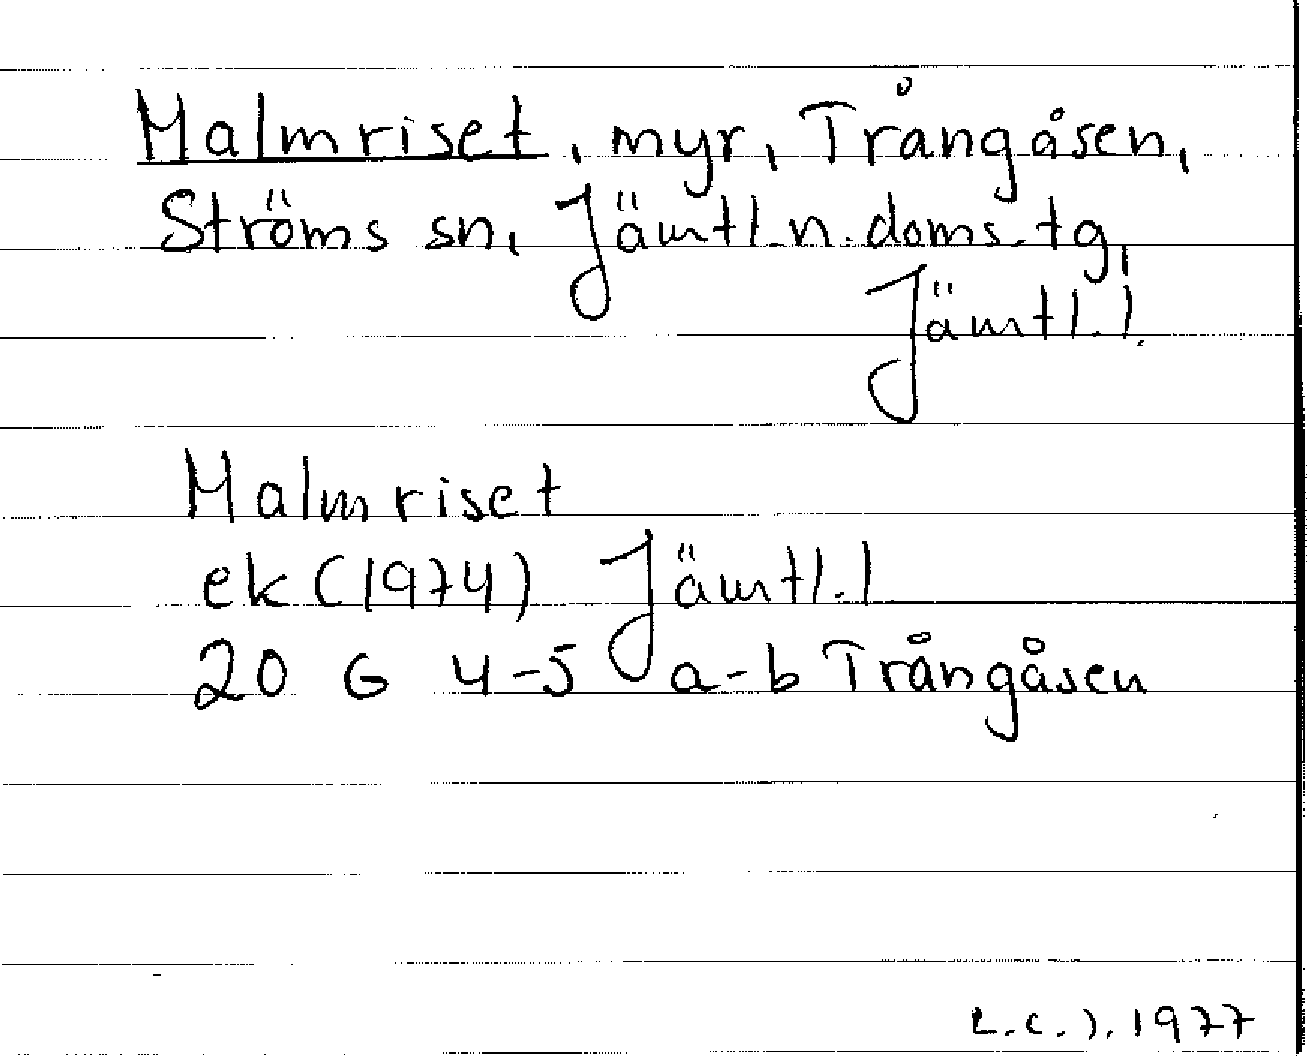 Malmriset, myr, Trångåsen,
Ströms sn, Jämtl. n. doms. tg,
Jämtl. l.
Malmriset
ek (1974) Jämtl. l
20 G 4-5 a-b Trångåsen
L.C.J. 1977